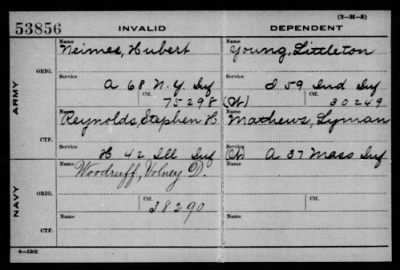 (3-21-5)
53856 INVALID DEPENDENT
Name Name
Neimes, Hubert Young, Littleton
ORIG. Service Ctf. Service Ctf.
A 68 N.Y. Inf I 59 Ind Inf
75298 (W) 30249
ARMY
Name Name
Reynolds, Stephen H Mathews, Lyman
CTF. Service Service
H 42 Ill Inf (W) A 37 Mass Inf
NAVY
Name Name
Woodruff, Volney D.
ORIG. Ctf. Ctf.
38290
CTF. Name Name